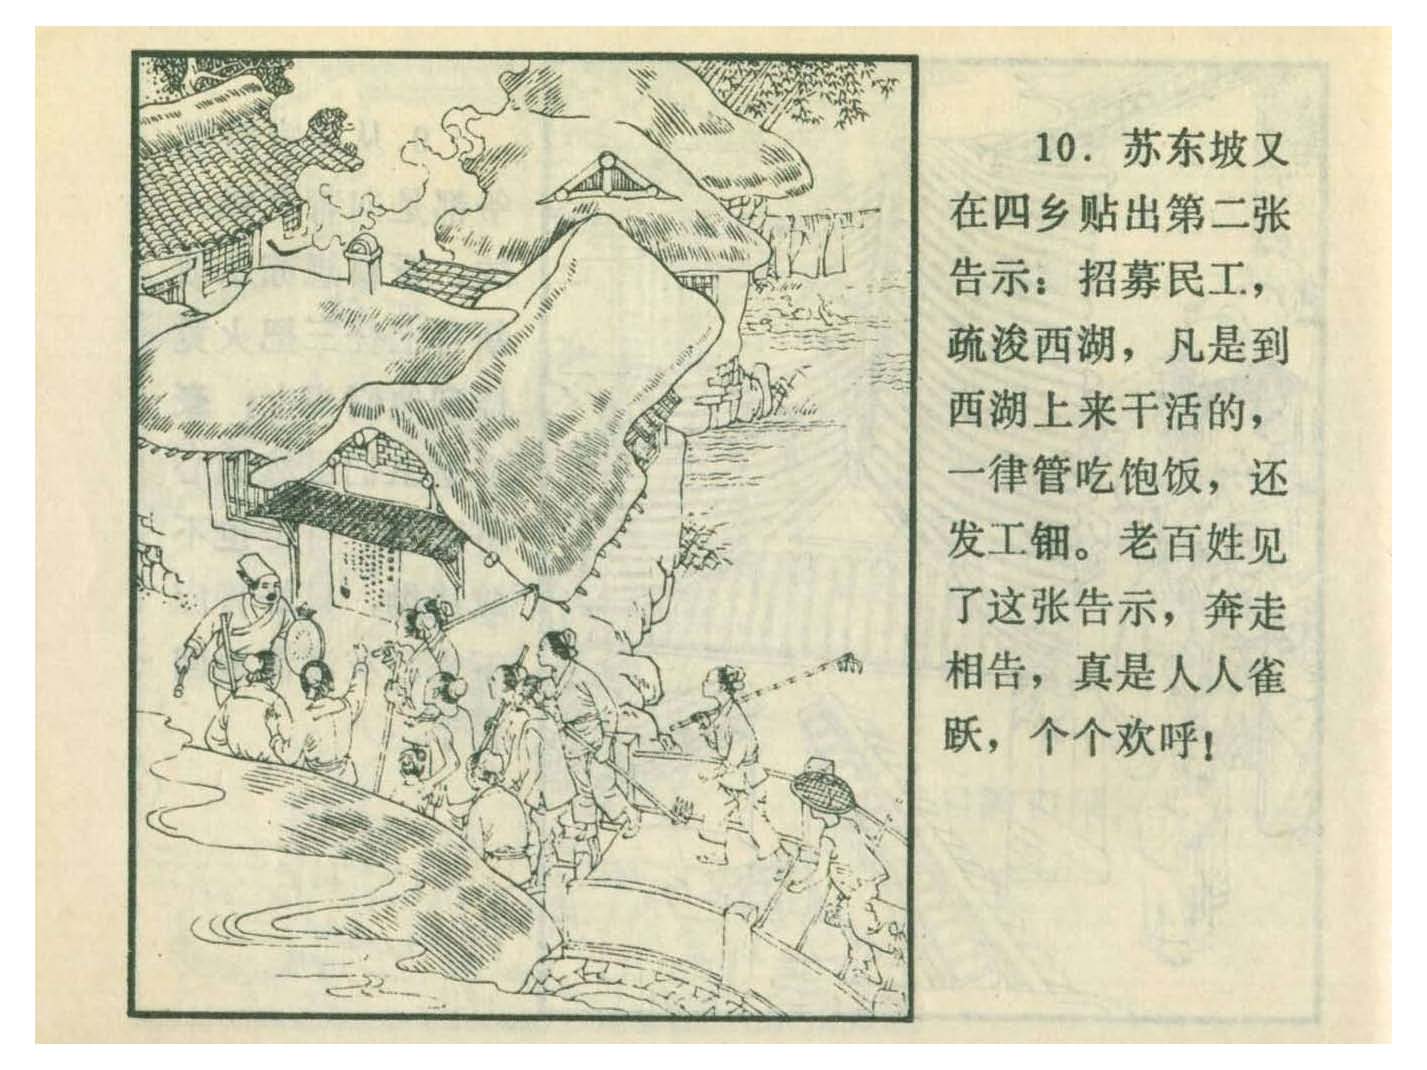 10. 苏东坡又
在四乡贴出第二张
告示：招募民工，
疏浚西湖，凡是到
西湖上来干活的，
一律管吃饱饭，还
发工钿。老百姓见
了这张告示，奔走
相告，真是人人雀
跃，个个欢呼！